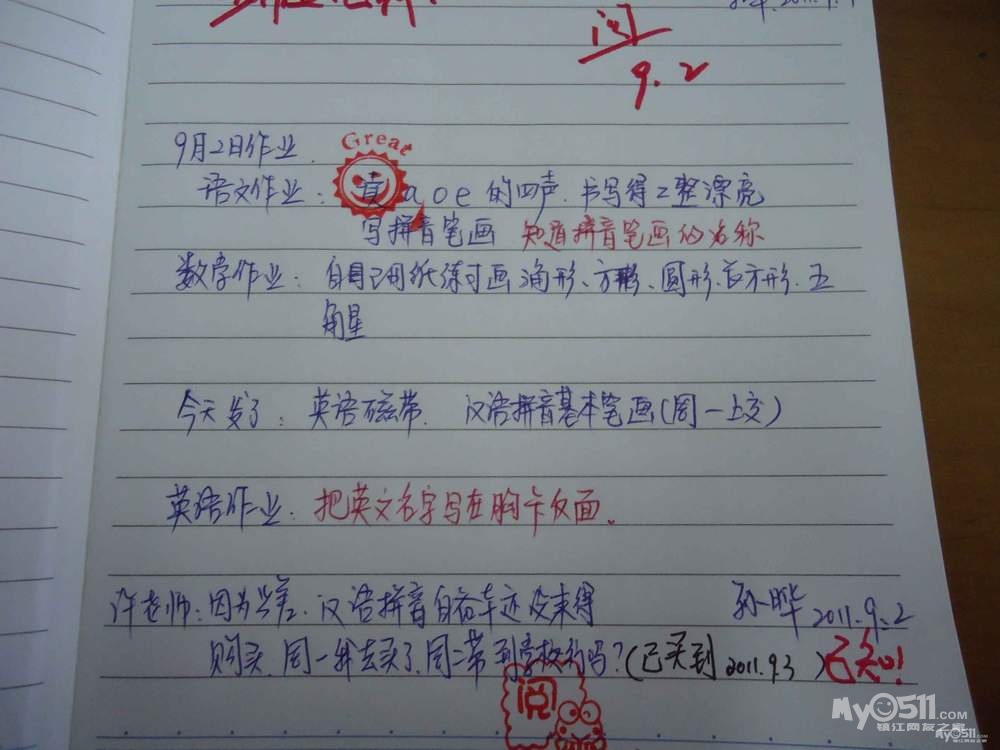 孙晔 2011.9.1
阅
9.2
9月2日作业.
Great
语文作业: 读 a o e 的四声. 书写得工整漂亮
写拼音笔画 知道拼音笔画的名称
数学作业: 自己用纸练习画三角形、方形、圆形、长方形、五
角星
今天发了: 英语磁带. 汉语拼音基本笔画(周一上交)
英语作业: 把英文名字写在胸卡反面。
许老师: 因为出差. 汉语拼音自 还没来得 孙晔 2011.9.2
购买. 周一我去买了. 周二带到学校行吗? (已买到 2011.9.3 ) 已知!
阅
My0511.com
镇江网友之家
My0511.com